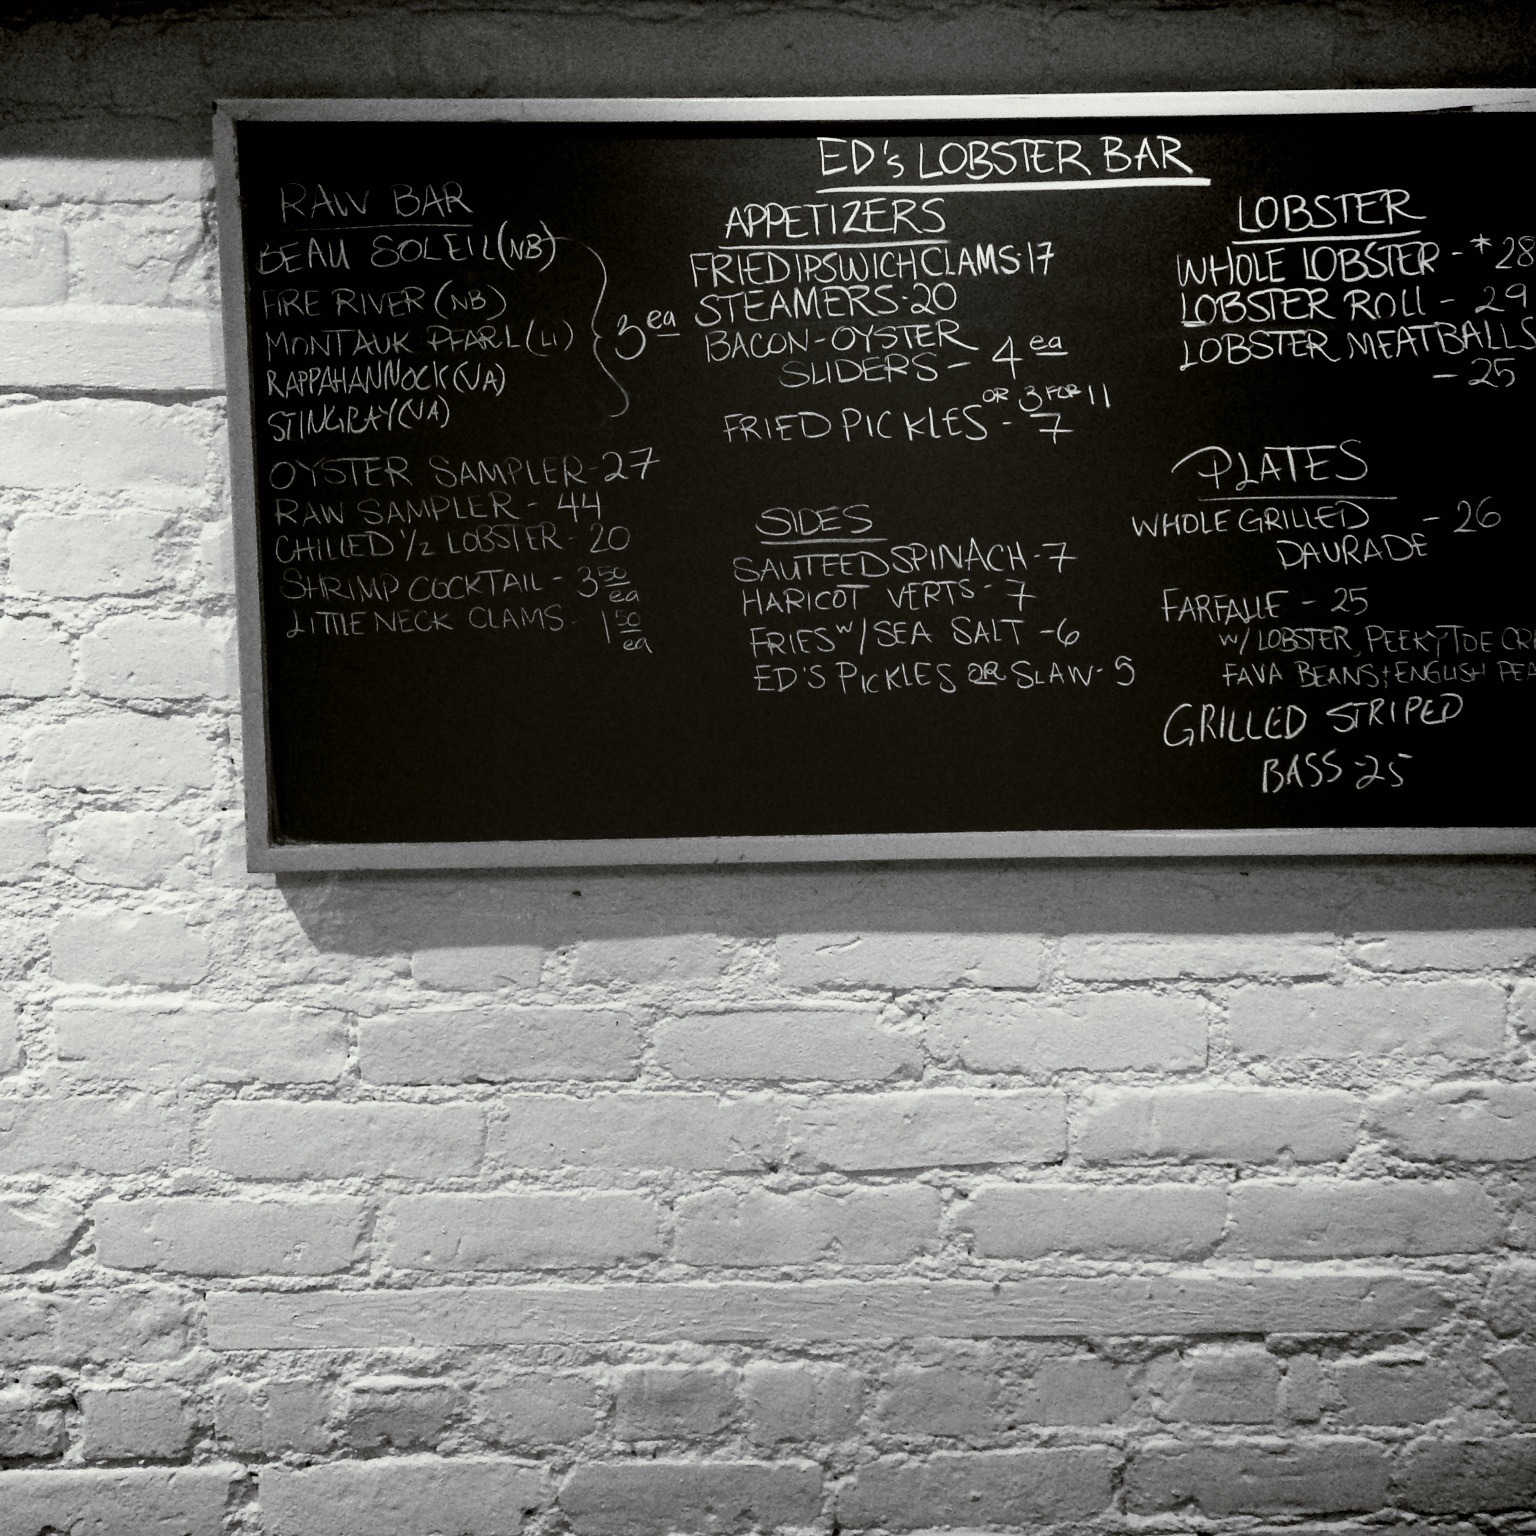 ED's LOBSTER BAR
RAW BAR
BEAU SOLEIL (NB)
FIRE RIVER (NB)
MONTAUK PEARL (LI)
RAPPAHANNOCK (VA)
STINGRAY (VA)
3 ea
OYSTER SAMPLER - 27
RAW SAMPLER - 44
CHILLED 1/2 LOBSTER - 20
SHRIMP COCKTAIL - 3 50 ea
LITTLE NECK CLAMS - 1 50 ea
APPETIZERS
FRIED IPSWICH CLAMS - 17
STEAMERS - 20
BACON-OYSTER
SLIDERS - 4 ea
OR 3 FOR 11
FRIED PICKLES - 7
SIDES
SAUTEED SPINACH - 7
HARICOT VERTS - 7
FRIES w/ SEA SALT - 6
ED'S PICKLES OR SLAW - 5
LOBSTER
WHOLE LOBSTER - * 28
LOBSTER ROLL - 29
LOBSTER MEATBALLS
- 25
PLATES
WHOLE GRILLED - 26
DAURADE
FARFALLE - 25
w/ LOBSTER, PEEKYTOE CR
FAVA BEANS + ENGLISH PEA
GRILLED STRIPED
BASS - 25